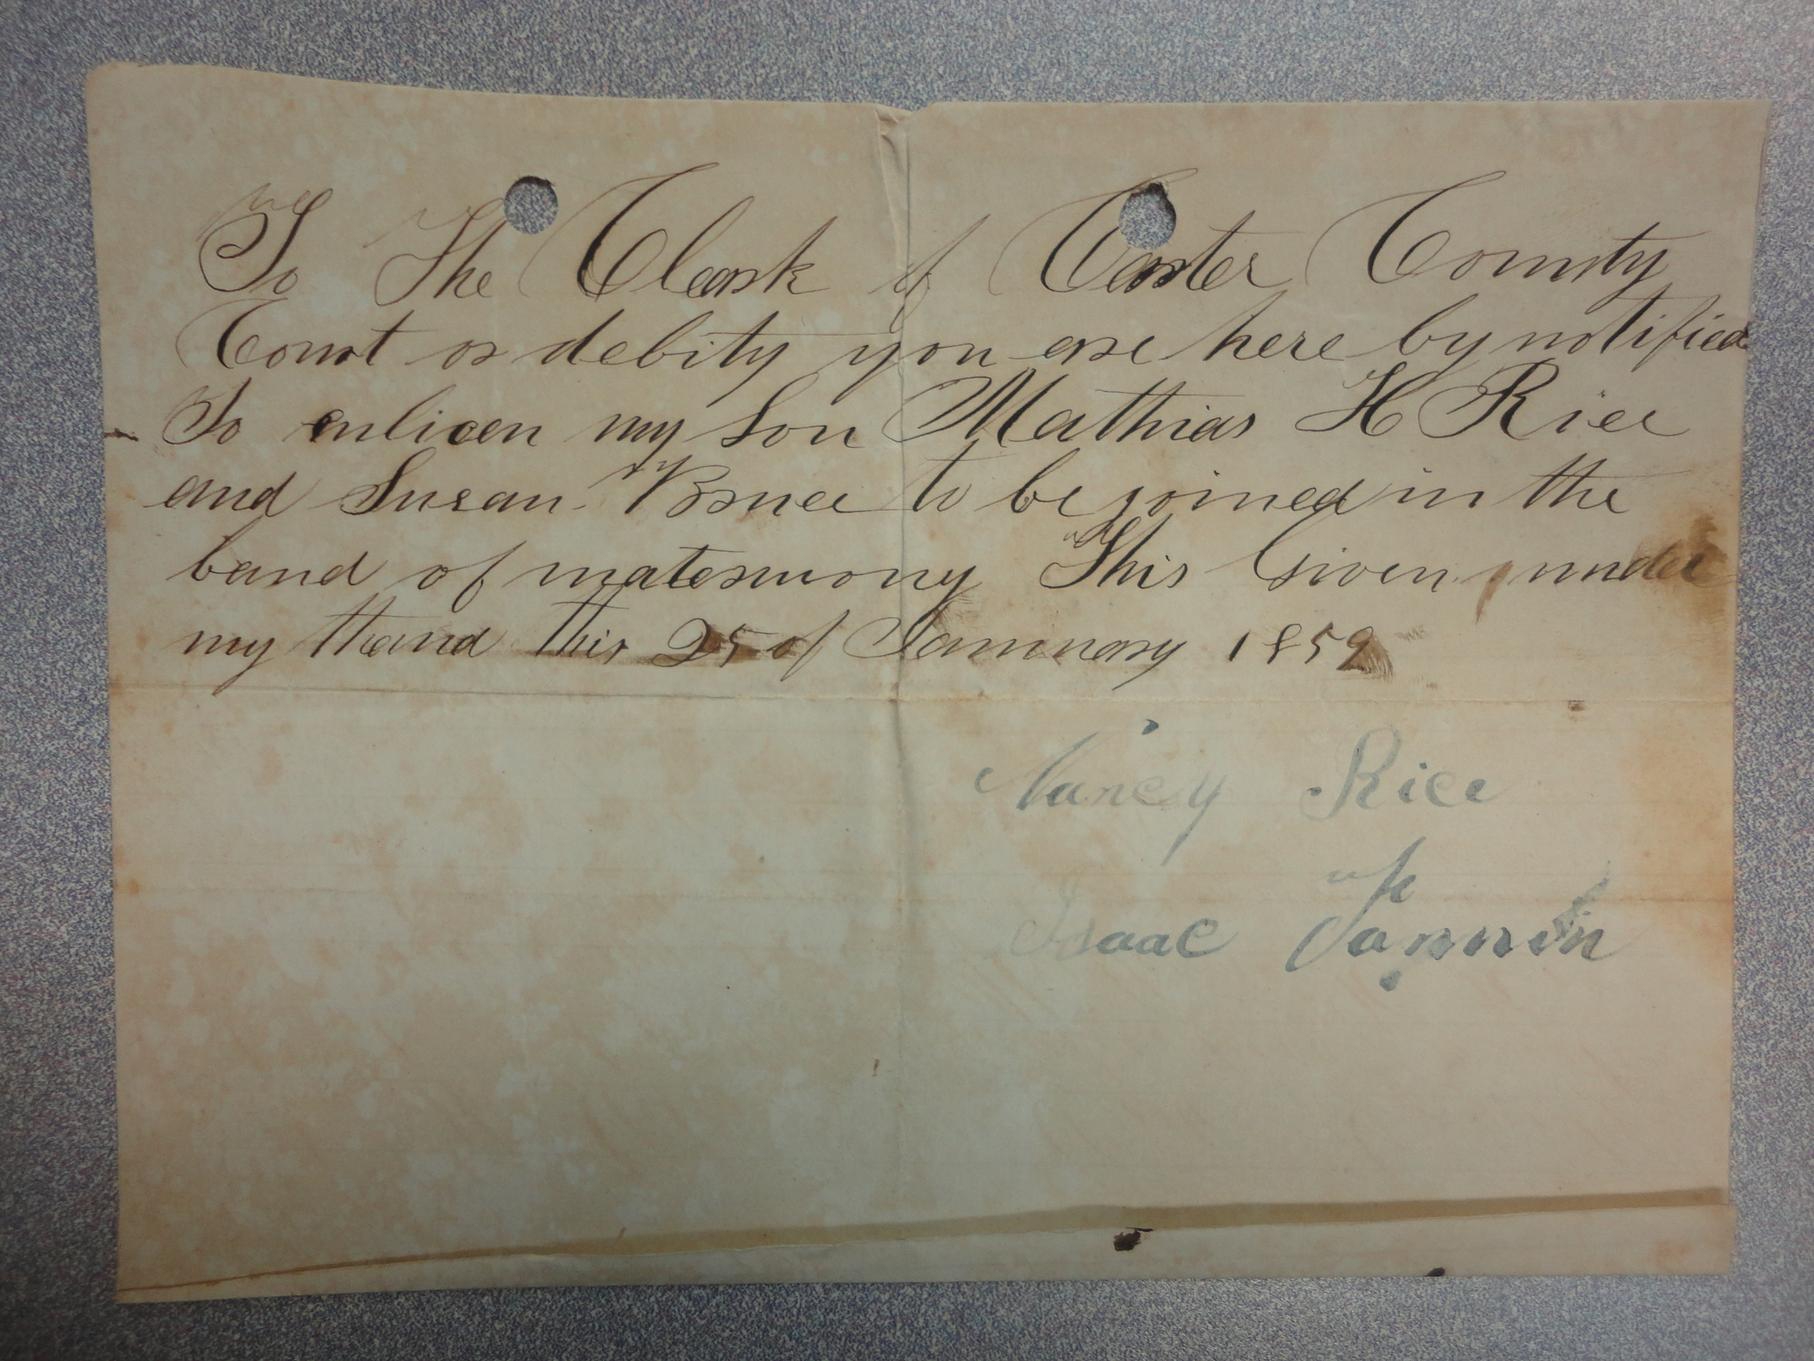 To The Cleark of Carter County
Court or debity you are here by notified
To enlicen my Son Mathias H Rice
and Susan Bruce to be joined in the
band of matermony This Given under
my thand this 25 of Januuary 1859
Nancy Rice
Isaac Fannin